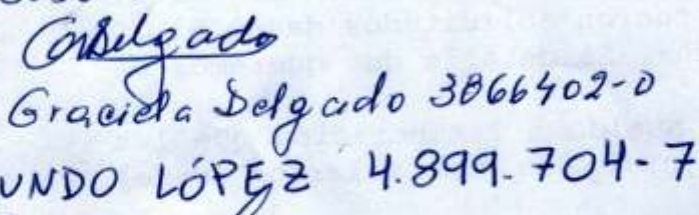 Delgado
Graciela Delgado 3866402-0
UNDO LÓPEZ 4.899.704-7